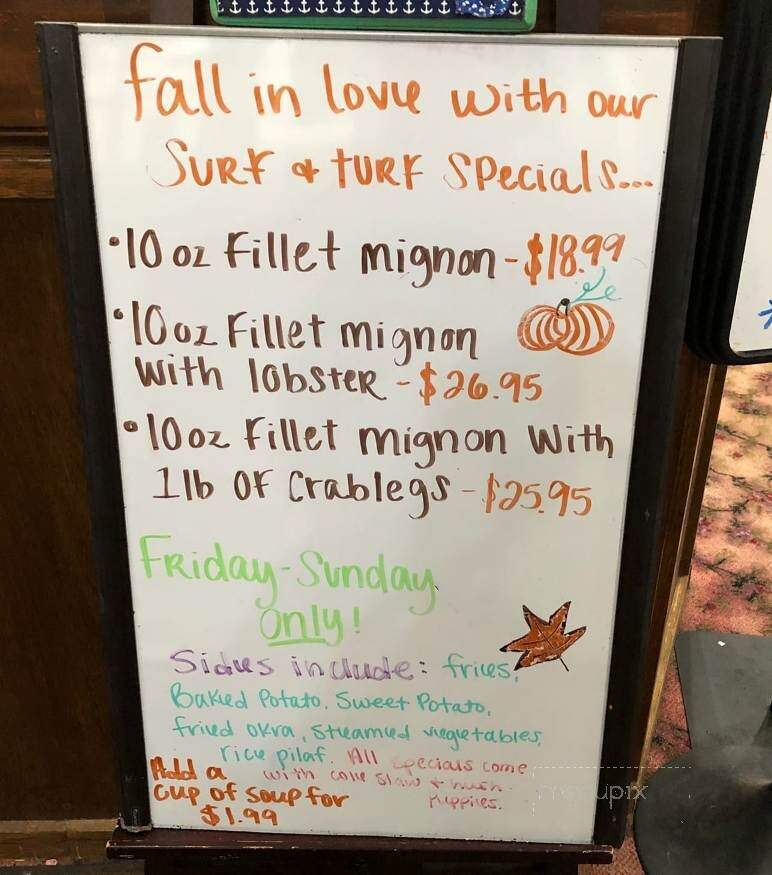 fall in love with our
Surf & turf Specials...
• 10 oz Fillet mignon - $18.99
• 10 oz Fillet mignon
with lobster - $26.95
• 10 oz Fillet mignon with
1 lb of Crablegs - $25.95
Friday - Sunday
Only!
Sides include: fries,
Baked Potato, Sweet Potato,
fried okra, steamed vegetables,
rice pilaf. All specials come
with cole slaw + hush
puppies.
Add a
cup of soup for
$1.99
menupix